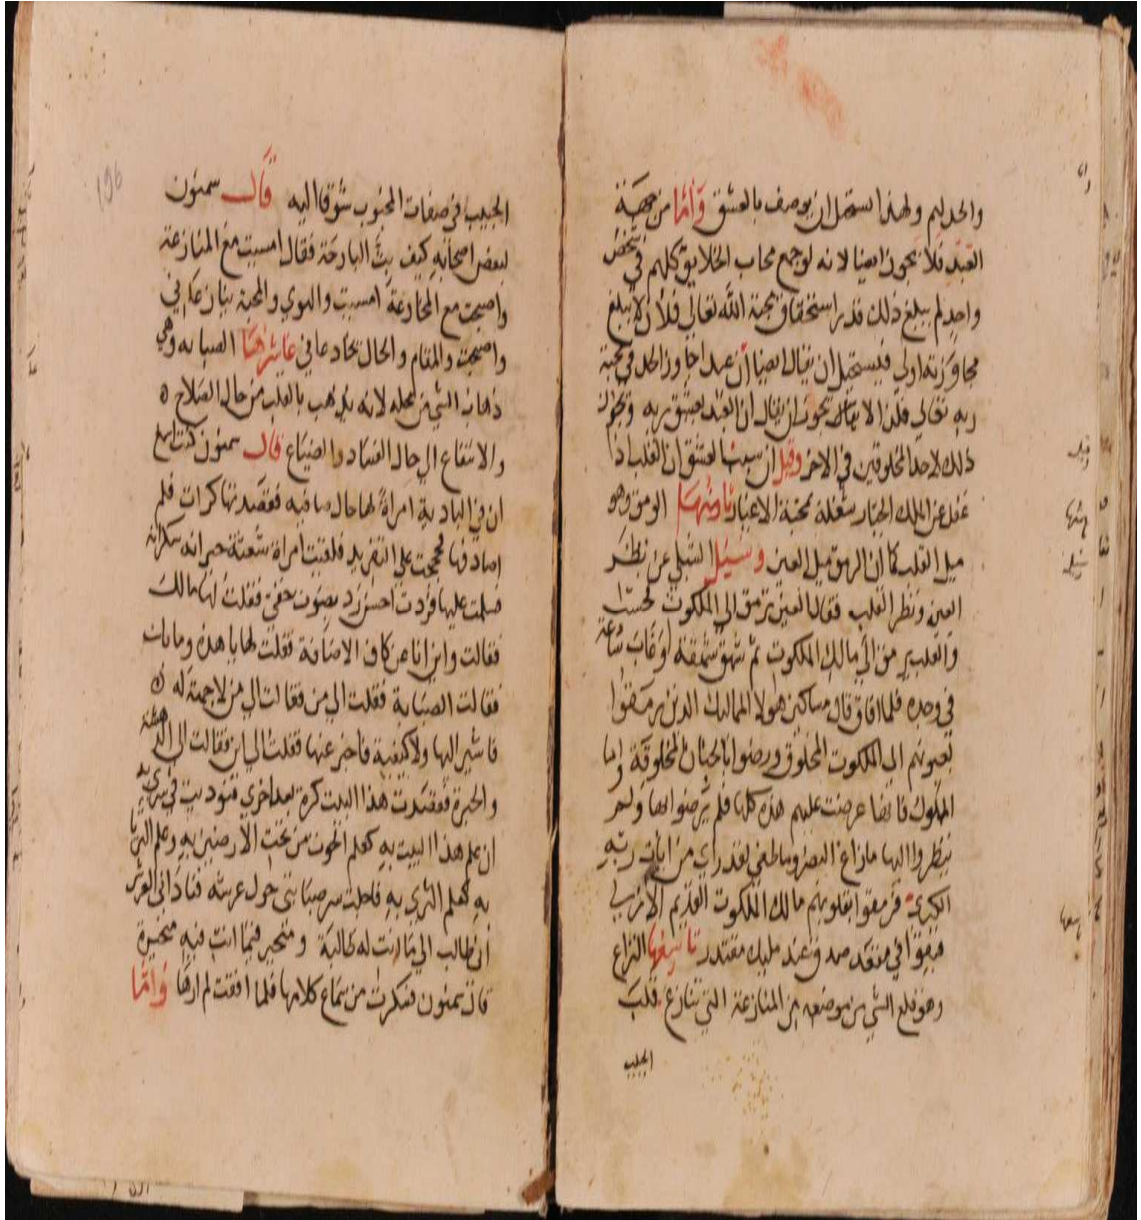 والحد لهم ولهذا استحل ان يوصف بالعشق وامّا من جهة
العبد فلا يجوز ايضا لانه لو جمع محاب الخلايق كلهم في شخص
واحد لم يبلغ ذلك قدر استحقاق محبة الله تعالى فلان لا يبلغ
مجاوزته اولى فيستحيل ان يقال ايضا ان عبدا جاوز الحد في محبة
ربه تعالى فلهذا الا يقال يجوز ان يقال ان العبد يعشق بربه ويجوز
ذلك لاحد المخلوقين في الاخر وقيل ان سبب العشق ان القلب اذا
غفل عن الملك الجبار شغله محبة الاغيار ثامنها الومق وهو
ميل القلب كما ان الرمق ميل العين وسئل الشبلي عن نظر
العين ونظر القلب فقال العين ترمق الى الملكوت
والقلب يرمق الى مالك الملكوت ثم شهق شهقة وغاب ساعة
في وجده فلما افاق قال مساكين هولا المماليك الذين رمقوا
بعيونهم الى الملكوت المخلوق ورضوا بالجنان المخلوقة واما
الملوك فانها عرضت عليهم هذه كلها فلم يرضوا بها ولم
ينظروا اليها ما زاغ البصر وما طغى لقد راى من ايات ربه
الكبرى فرمقوا بقلوبهم مالك الملكوت القديم الازلي
فبقوا في مقعد صدق عند مليك مقتدر تاسعها النزاع
وهو قلع الشي من موضعه من المنازعة التي تنازع قلب
الحبيب
الحبيب في صفات المحبوب شوقا اليه قال سمنون
لبعض اصحابه كيف بت البارحة فقال امسيت مع المنازعة
واصبحت مع المخادعة امسيت والهوى والمحبة ينازعاني
واصبحت والمقام والحال يخادعاني عاشرها الصبابة وهي
ذهاب الشي من محله لانه يذهب بالقلب من حال الصلاح
والانتفاع الى حال الفساد والضياع قال سمنون كنت اسمع
ان في البادية امراة لها حال صافية فقصدتها كرات فلم
اصادفها فحججت على التفريد فلقيت امراة شعثة حيرانة سكرانة
فسلمت عليها فردت احسن رد بصوت خفي فقلت لها مالك
فقالت واين انا من كاف الاضافة فقلت لها يا هذه وما بك
فقالت الصبابة فقلت الى من فقالت الى من لا جهة له
فاشير اليها ولا كيفية فاخبر عنها فقلت الى اين فقالت الى الدهشة
والحيرة فقصدت هذا البيت كرة بعد اخرى فنوديت في سري
ان علم هذا البيت به كعلم الحوت من تحت الارضين به وعلم الثريا
به كعلم الثرى به فاحلت سر صبابتي حول عرشه فناداني العرش
اني طالب الى ما انت له طالبة ومتحير فيما انت فيه متحيرة
قال سمنون فسكرت من سماع كلامها فلما افقت لم ارها وامّا
196